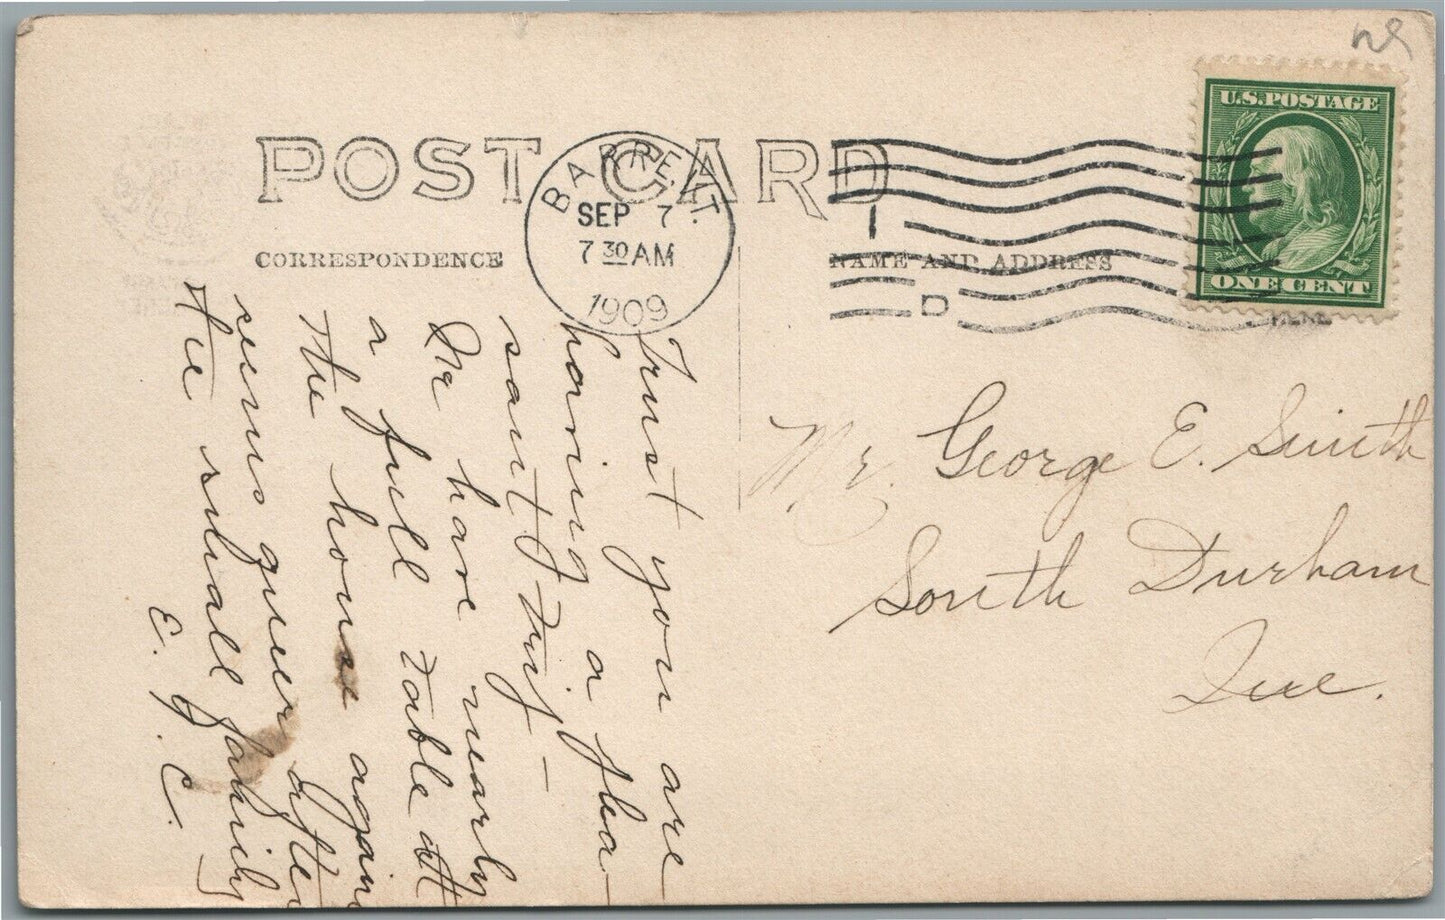 POST CARD
CORRESPONDENCE
NAME AND ADDRESS
BARRE, VT.
SEP 7
7 30 AM
1909
D
U.S. POSTAGE
ONE CENT
Mr. George E. Smith
South Durham
Que.
Trust you are
having a plea-
sant trip –
We have nearly
a full table at
the house again
seems queer after
the small family
E. J. C.